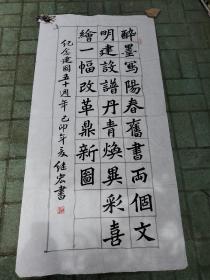 醉墨寫陽春奮書兩個文
明建設譜丹青煥異彩喜
繪一幅改革鼎新圖
紀念建國五十週年己卯年友继宏書